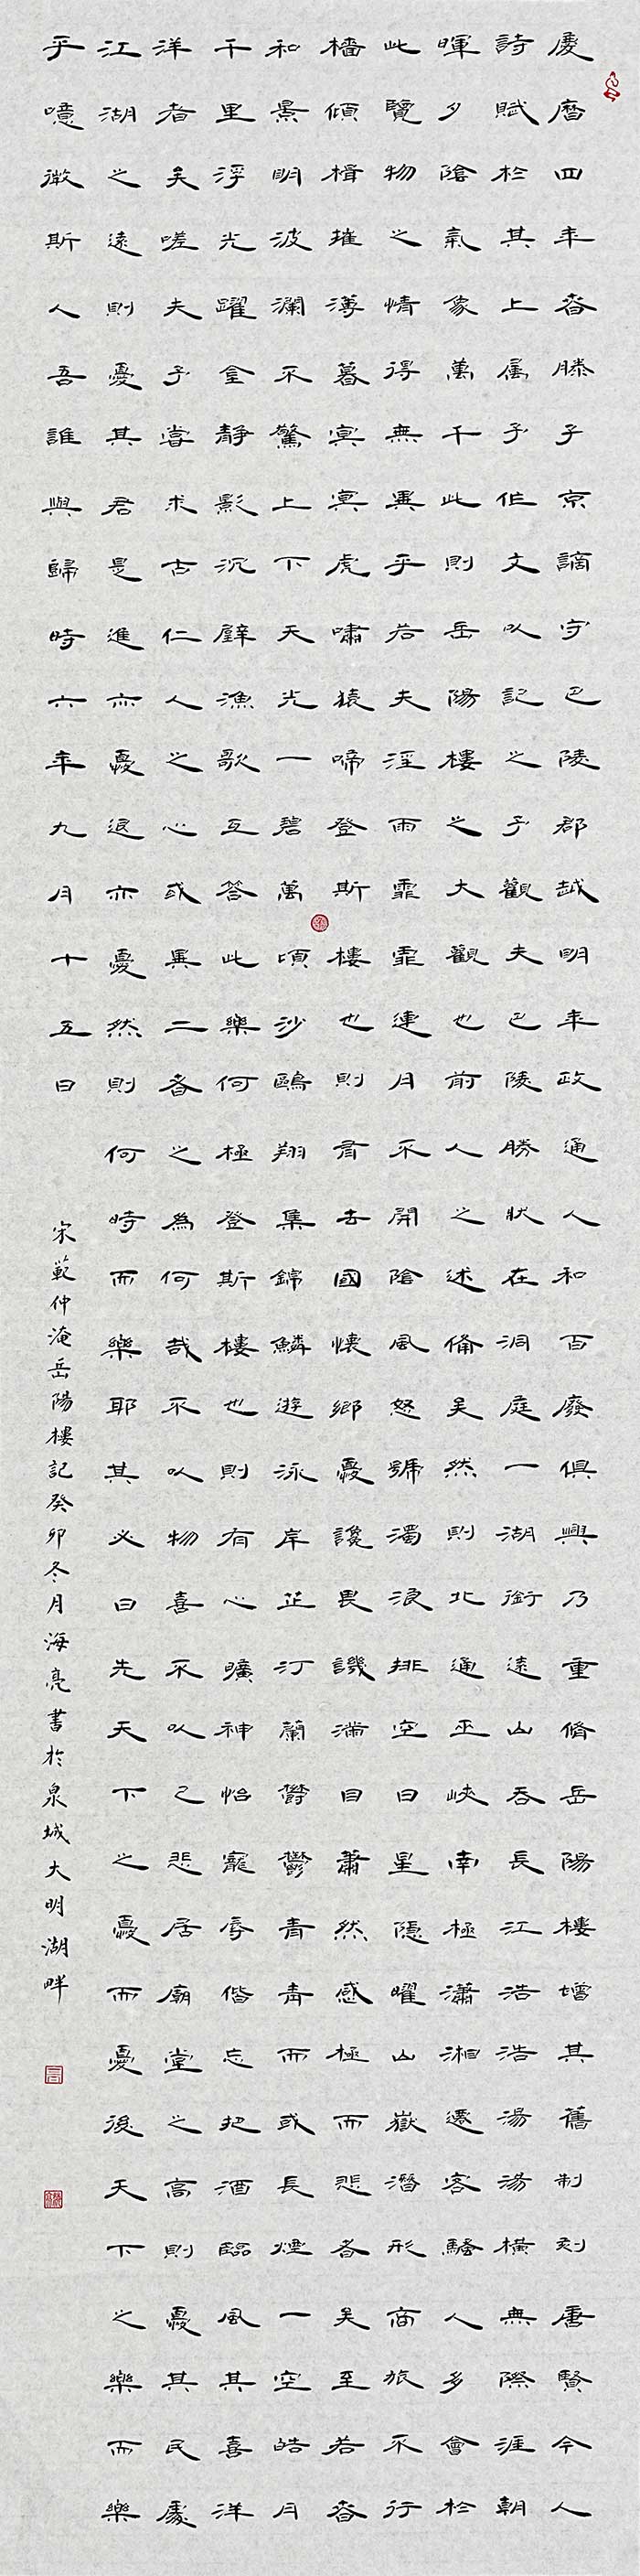 慶曆四年春滕子京謫守巴陵郡越明年政通人和百廢俱興乃重脩岳陽樓增其舊制刻唐賢今人
詩賦於其上属予作文以記之予觀夫巴陵勝狀在洞庭一湖銜遠山吞長江浩浩湯湯橫無際涯朝
暉夕陰氣象萬千此則岳陽樓之大觀也前人之述備矣然則北通巫峽南極瀟湘遷客騷人多會於
此覽物之情得無異乎若夫淫雨霏霏連月不開陰風怒號濁浪排空日星隱曜山嶽潛形商旅不行
檣傾楫摧薄暮冥冥虎嘯猿啼登斯樓也則有去國懷鄉憂讒畏譏滿目蕭然感極而悲者矣至若春
和景明波瀾不驚上下天光一碧萬頃沙鷗翔集錦鱗遊泳岸芷汀蘭鬱鬱青青而或長煙一空皓月
千里浮光躍金静影沉璧漁歌互答此樂何極登斯樓也則有心曠神怡寵辱偕忘把酒臨風其喜洋
洋者矣嗟夫予嘗求古仁人之心或異二者之為何哉不以物喜不以己悲居廟堂之高則憂其民處
江湖之遠則憂其君是進亦憂退亦憂然則何時而樂耶其必曰先天下之憂而憂後天下之樂而樂
乎噫微斯人吾誰與歸時六年九月十五日
宋範仲淹岳陽樓記癸卯冬月海亮書於泉城大明湖畔